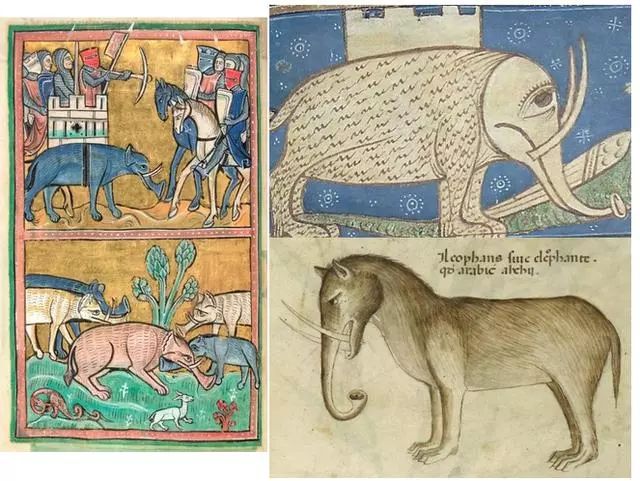 Ileophans siue elephante .
qd arabice alchil.